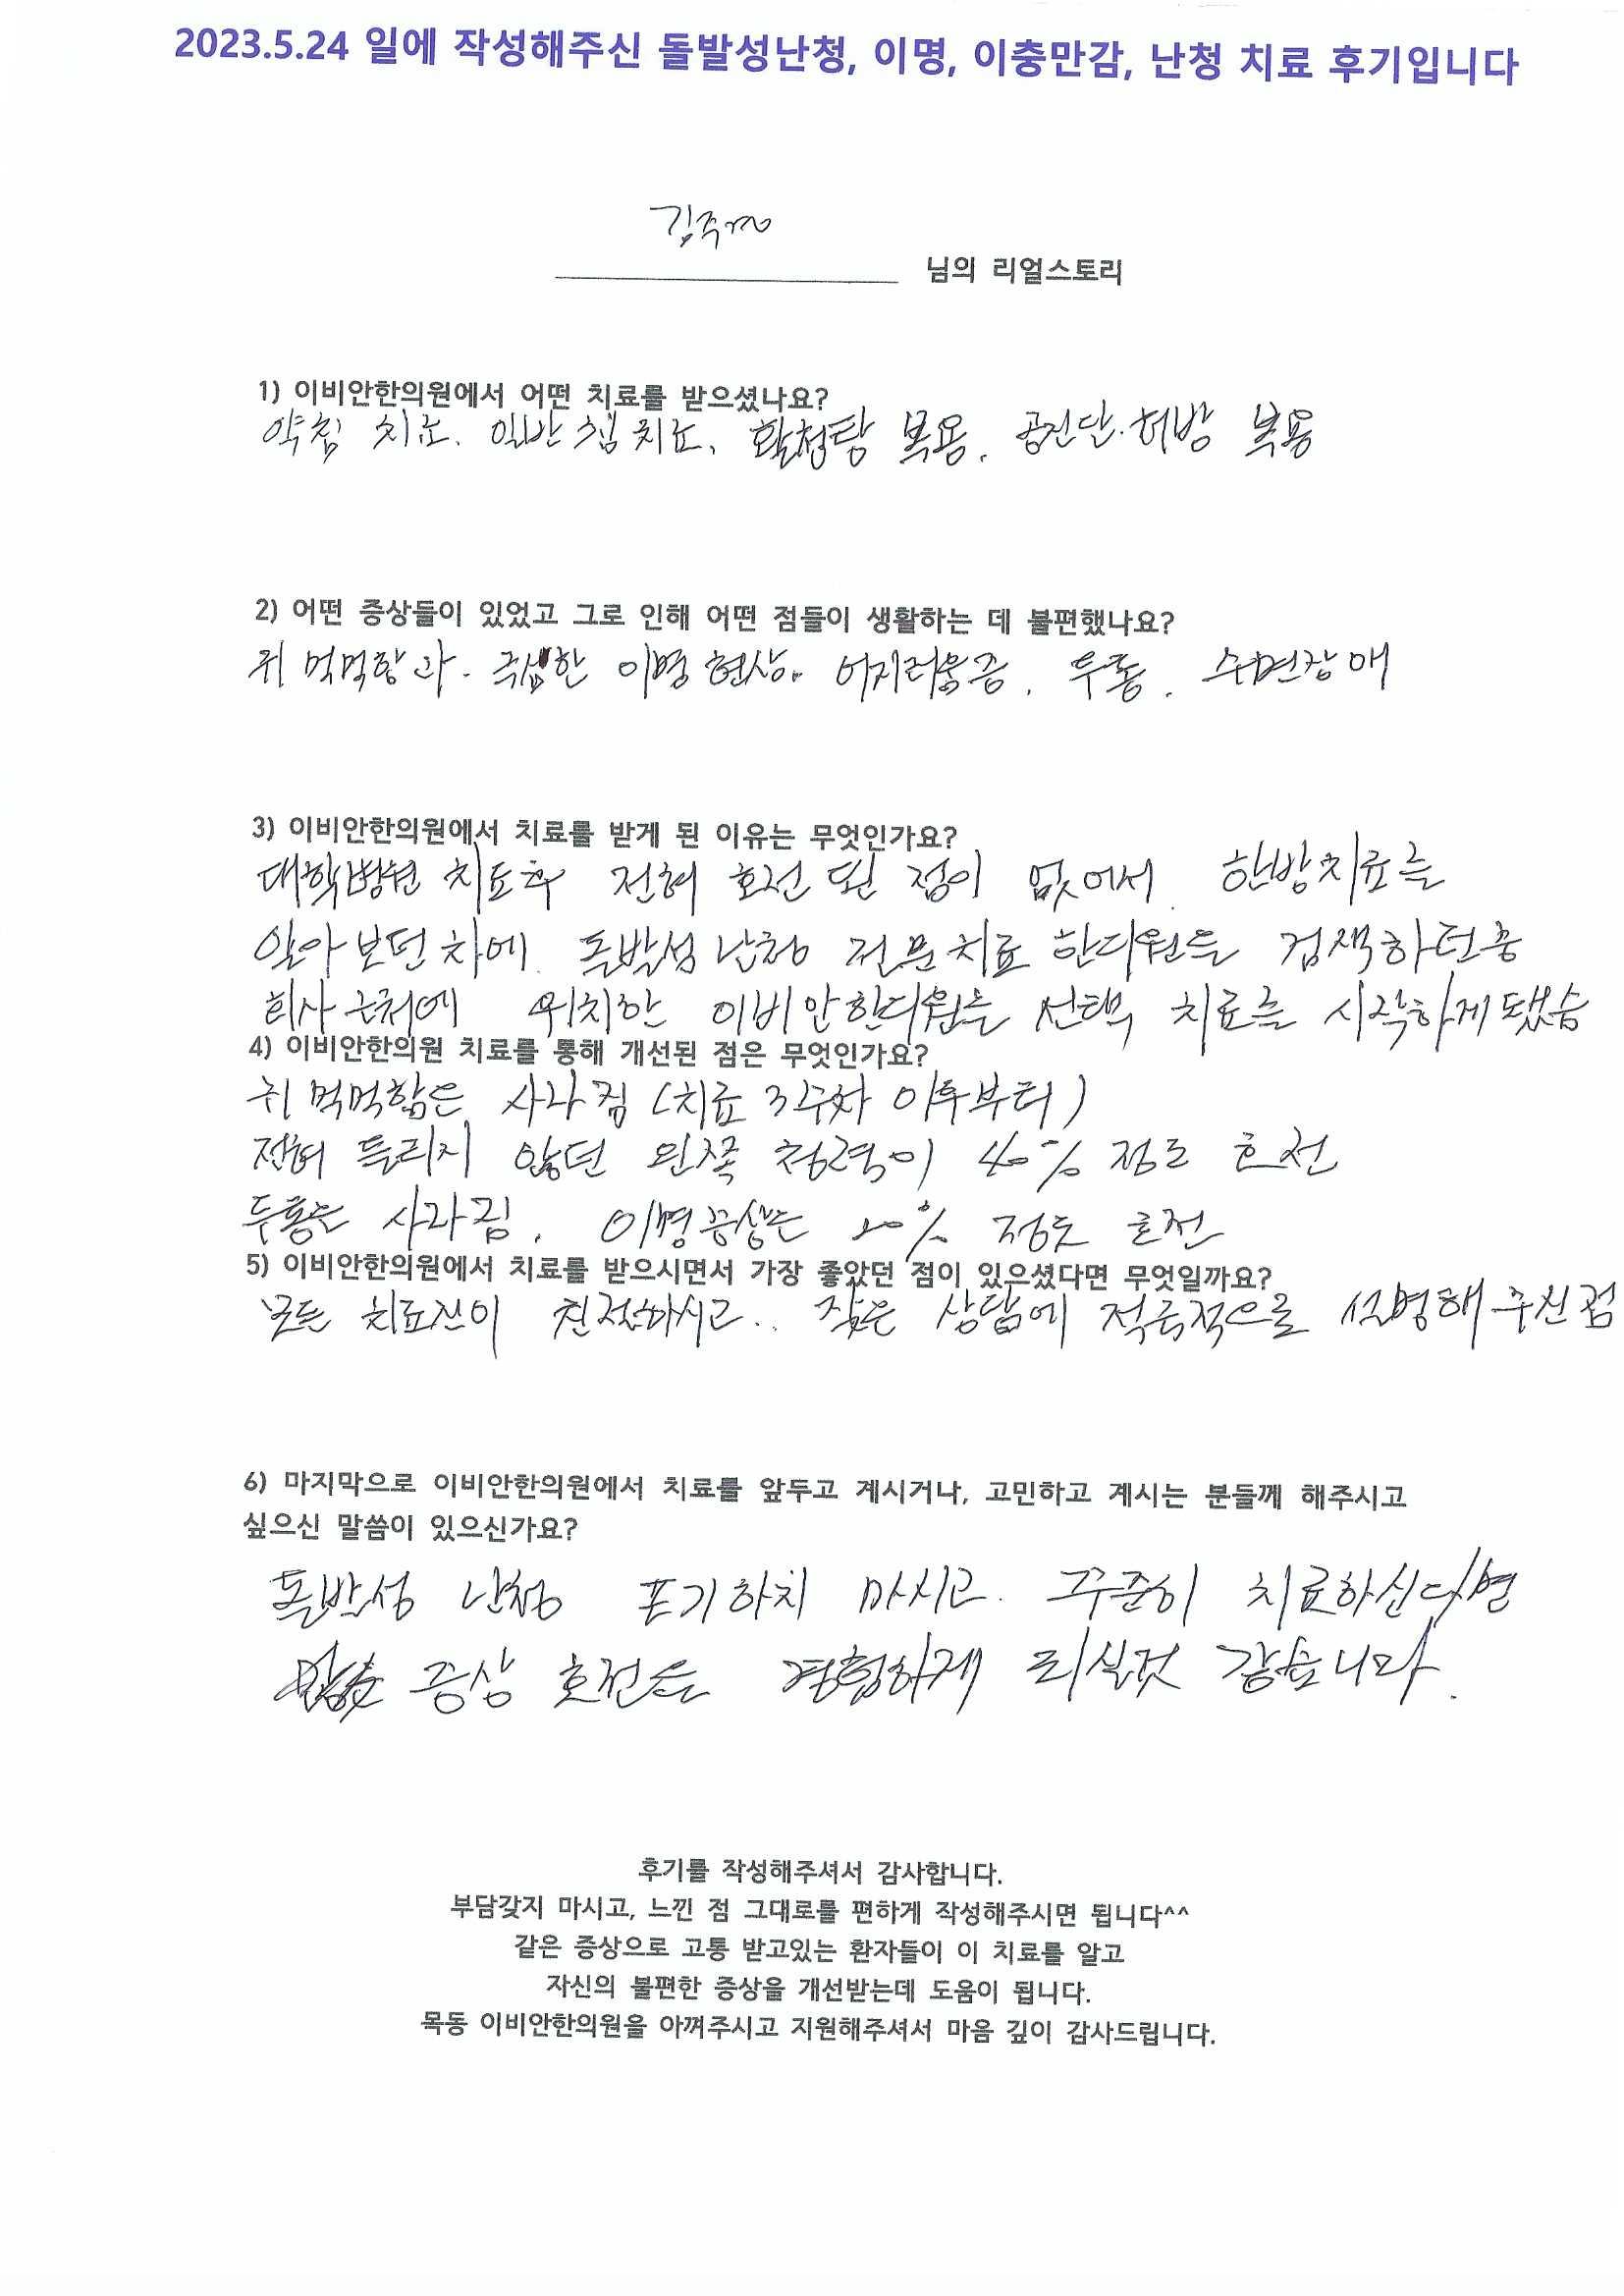 2023.5.24 일에 작성해주신 돌발성난청, 이명, 이충만감, 난청 치료 후기입니다
님의 리얼스토리
1) 이비안한의원에서 어떤 치료를 받으셨나요?
약침 치료. 일반 침 치료, 활청탕 복용. 공진단. 처방 복용
2) 어떤 증상들이 있었고 그로 인해 어떤 점들이 생활하는 데 불편했나요?
귀 먹먹함과. 극심한 이명 현상. 어지러움증. 두통. 수면장애
3) 이비안한의원에서 치료를 받게 된 이유는 무엇인가요?
대학병원 치료후 전혀 호전 된 점이 없어서 한방치료를
알아보던 차에 돌발성 난청 전문치료 한의원을 검색하던중
회사 근처에 위치한 이비안한의원을 선택 치료를 시작하게 됐음
4) 이비안한의원 치료를 통해 개선된 점은 무엇인가요?
귀 먹먹함은 사라짐 (치료 3주차 이후부터)
전혀 들리지 않던 왼쪽 청력이 40% 정도 호전
두통은 사라짐. 이명증상은 20% 정도 호전
5) 이비안한의원에서 치료를 받으시면서 가장 좋았던 점이 있으셨다면 무엇일까요?
모든 치료진이 친절하시고.. 잦은 상담에 적극적으로 설명해 주신점
6) 마지막으로 이비안한의원에서 치료를 앞두고 계시거나, 고민하고 계시는 분들께 해주시고
싶으신 말씀이 있으신가요?
돌발성 난청 포기하지 마시고. 꾸준히 치료하신다면
증상 호전을 경험하게 되실것 같습니다.
후기를 작성해주셔서 감사합니다.
부담갖지 마시고, 느낀 점 그대로를 편하게 작성해주시면 됩니다^^
같은 증상으로 고통 받고있는 환자들이 이 치료를 알고
자신의 불편한 증상을 개선받는데 도움이 됩니다.
목동 이비안한의원을 아껴주시고 지원해주셔서 마음 깊이 감사드립니다.